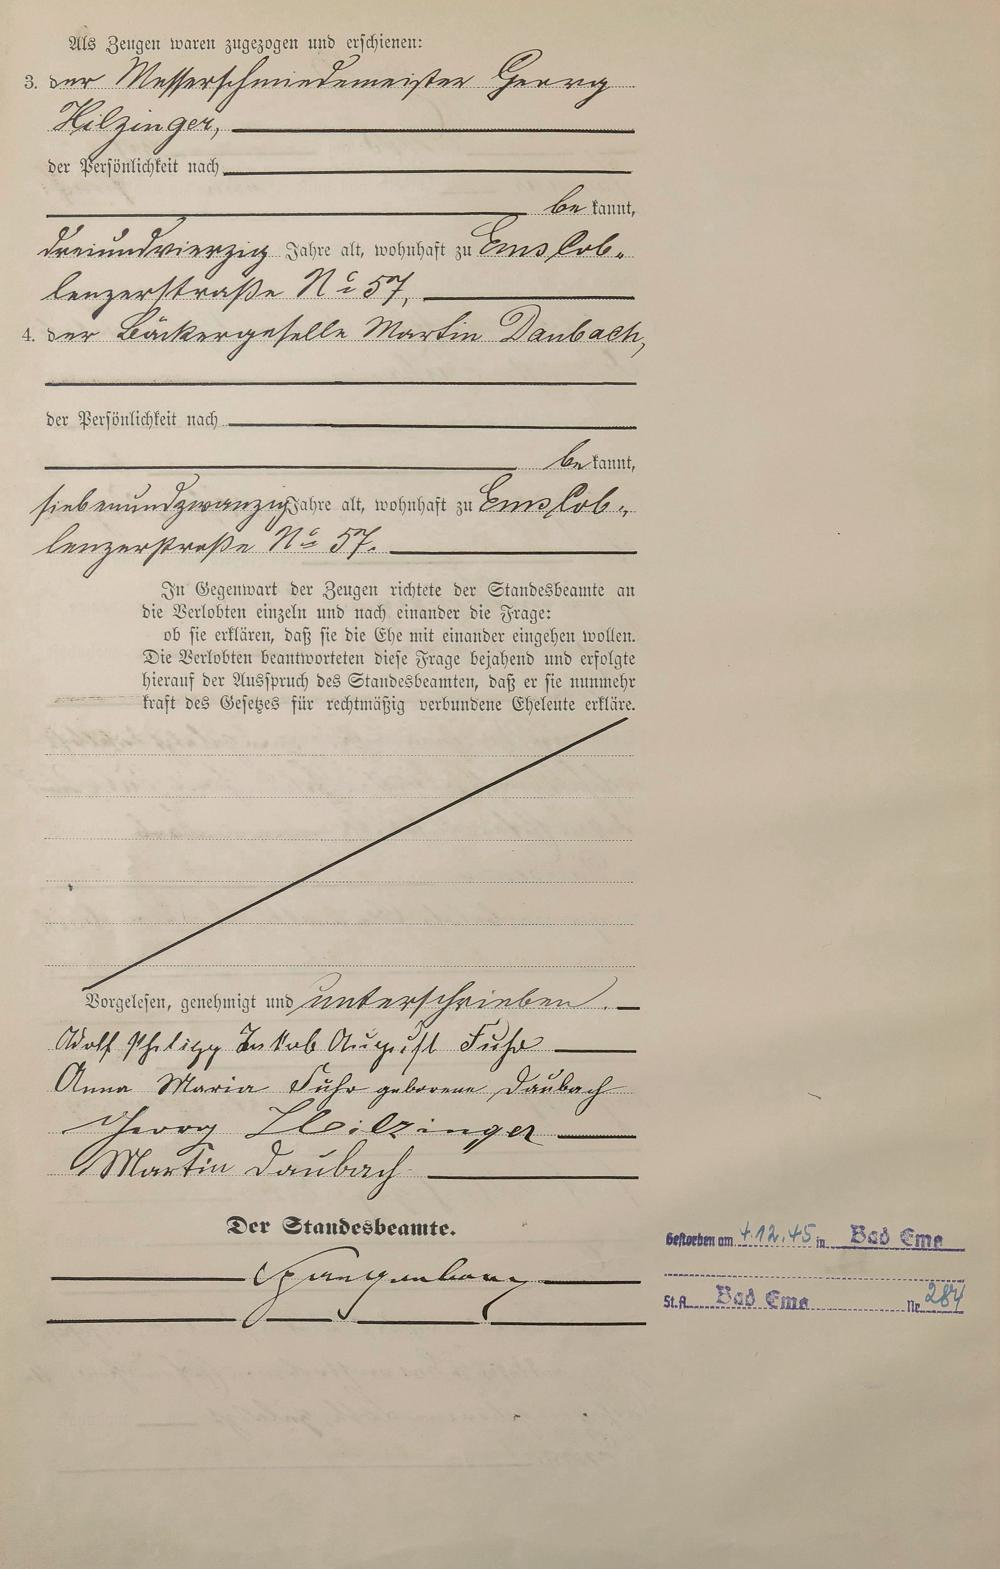 Als Zeugen waren zugezogen und erschienen:
3. der Messerschmiedemeister Georg
Hilzinger,
der Persönlichkeit nach
be kannt,
dreiundvierzig Jahre alt, wohnhaft zu Ems Cob-
lenzerstraße No 57,
4. der Bäckergeselle Martin Daubach,
der Persönlichkeit nach
be kannt,
siebenundzwanzig Jahre alt, wohnhaft zu Ems Cob-
lenzerstraße No 57.
In Gegenwart der Zeugen richtete der Standesbeamte an
die Verlobten einzeln und nach einander die Frage:
ob sie erklären, daß sie die Ehe mit einander eingehen wollen.
Die Verlobten beantworteten diese Frage bejahend und erfolgte
hierauf der Ausspruch des Standesbeamten, daß er sie nunmehr
kraft des Gesetzes für rechtmäßig verbundene Eheleute erkläre.
Vorgelesen, genehmigt und unterschrieben.
Adolf Philipp Jakob August Fuhr
Anna Maria Fuhr geborene Daubach
Georg Hilzinger
Martin Daubach
Der Standesbeamte.
Gestorben am 4.12.45 in Bad Ems
St.A. Bad Ems Nr. 284